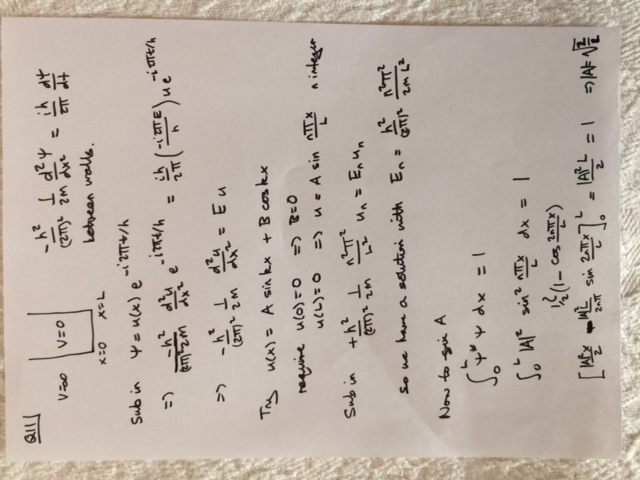 Q11]
V=∞ V=0 -h²/(2π)² 1/2m d²ψ/dx² = ih/2π dψ/dt
x=0 x=L between walls.
Sub in ψ = u(x) e^{-i2πEt/h}
⇒ -h²/(2π)²2m d²u/dx² e^{-i2πEt/h} = ih/2π (-i2πE/h) u e^{-i2πEt/h}
⇒ -h²/(2π)² 1/2m d²u/dx² = E u
Try u(x) = A sin kx + B cos kx
require u(0)=0 ⇒ B=0
u(L)=0 ⇒ u = A sin nπx/L n integer
Sub in +h²/(2π)² 1/2m n²π²/L² uₙ = Eₙ uₙ
so we have a solution with Eₙ = h²/(2π)² n²π²/2mL²
Now to find A
∫₀ᴸ ψ* ψ dx = 1
∫₀ᴸ |A|² sin² nπx/L dx = 1
½(1 - cos 2nπx/L)
[|A|²x/2 - |A|²L/2π sin 2nπx/L]₀ᴸ = |A|²L/2 = 1 ⇒ |A| = √2/L